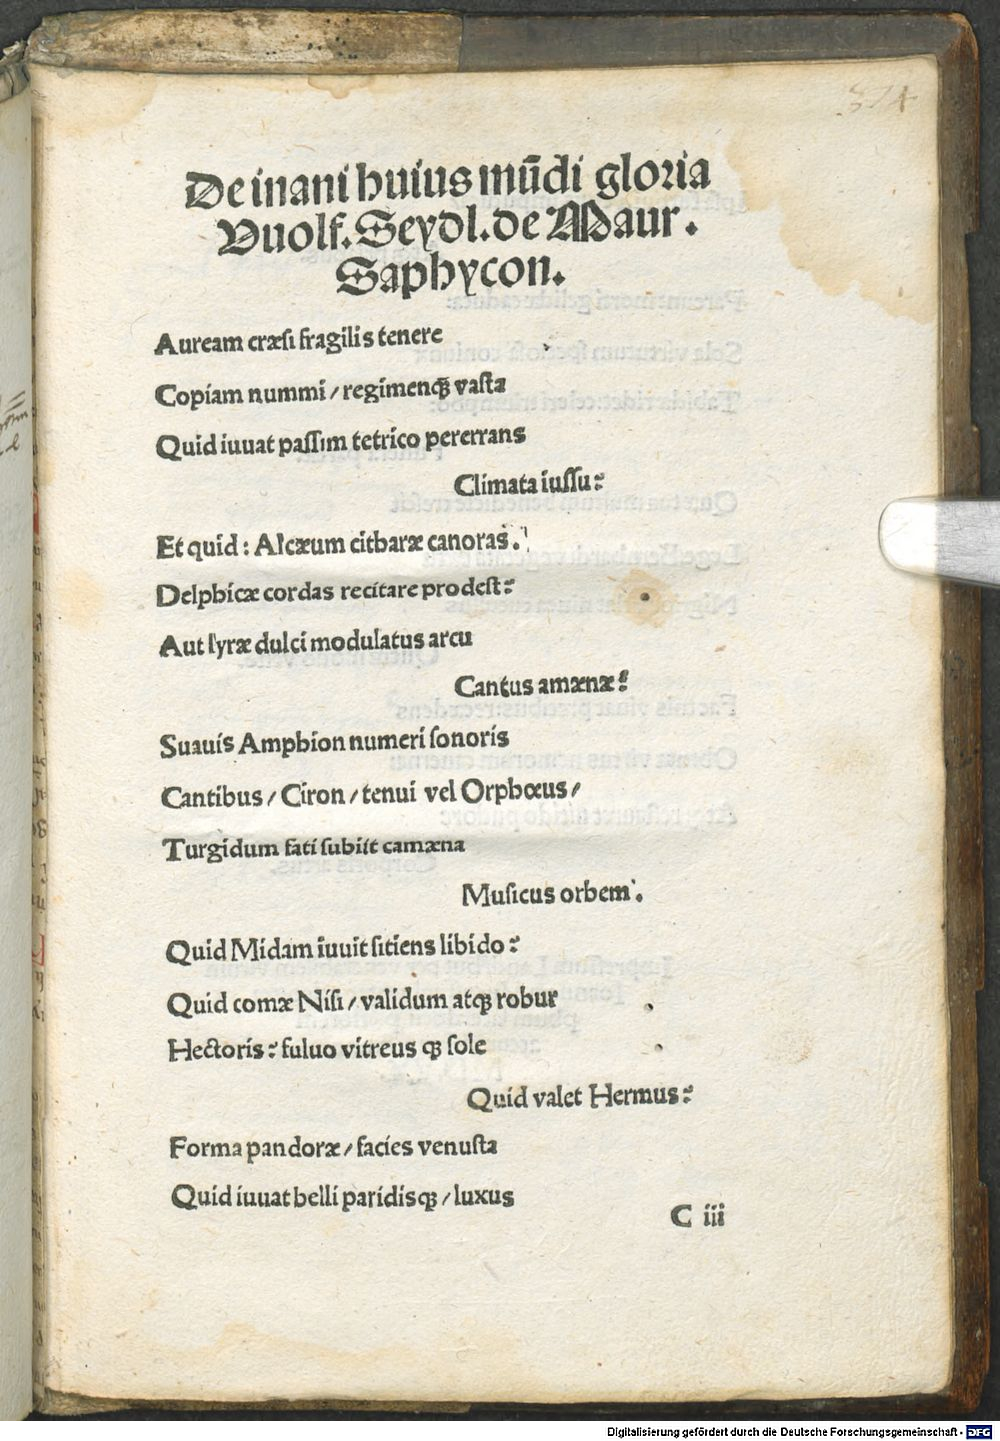 374
De inani huius mūdi gloria
Vuolf. Seydl. de Maur.
Saphycon.
Auream cræsi fragilis tenere
Copiam nummi / regimenqꝫ vasta
Quid iuuat passim tetrico pererrans
Climata iussu:
Et quid : Alcæum citharæ canoras.
Delphicæ cordas recitare prodest:
Aut lyræ dulci modulatus arcu
Cantus amænæ:
Suauis Amphion numeri sonoris
Cantibus / Ciron / tenui vel Orphœus /
Turgidum fati subiit camæna
Musicus orbem.
Quid Midam iuuit sitiens libido:
Quid comæ Nisi / validum atqꝫ robur
Hectoris: fuluo vitreus qꝫ sole
Quid valet Hermus:
Forma pandoræ / facies venusta
Quid iuuat belli paridisqꝫ / luxus
C iii
Digitalisierung gefördert durch die Deutsche Forschungsgemeinschaft - DFG